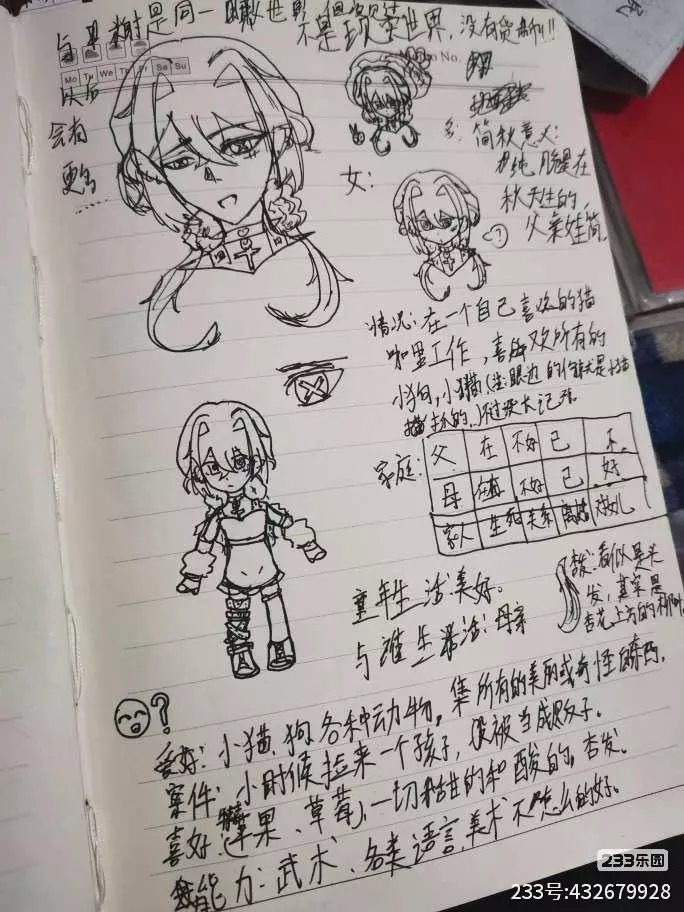 与 是同一 世界，但 不是现 世界，没有 !!
Mo Tu We Th Fr Sa Su
Memo No.
以后
会有
更多
……
名：简秋意义：
单纯
秋天生的，
父亲姓简
女：
情况：在一个自己喜欢的猫
咖里工作，喜欢所有的
小狗，小猫（
不过没长记
家庭：
父 在 不好 已 不
母 在 不好 已 好
家人 生死 关系 离婚 对女儿
童年生活美好。
与谁生活：母亲
杏发：看似是头
发，其实是
杏花上方的
？
爱好：小猫、狗各种动物。集所有的美丽或奇怪的东西，
案件：小时候捡来一个孩子，没被当成
喜好：苹果、草莓，一切甜的和酸的，杏发。
能力：武术、各类语言，美术不怎么的好。
233乐园
233号:432679928